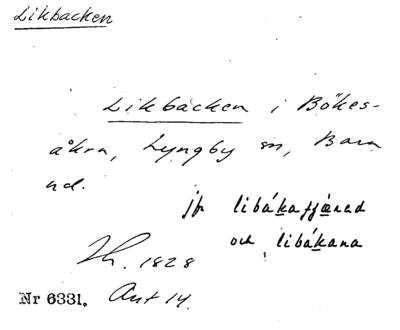 Likbacken
Likbäcken i Bökes-
åkra, Lyngby sn, Bara
hd.
jfr libákafjǽrad
och libákana
Th. 1828
Nr 6331. Ant 14.